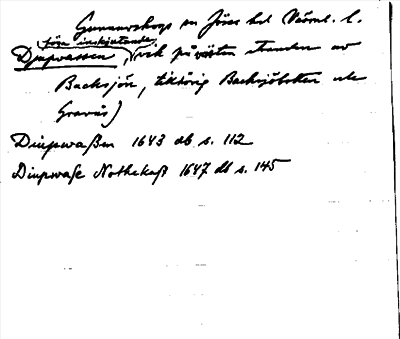 Gunnarskogs sn Jösse hd Värml. l.
före inskjutande
Djupvassen, vik på västra stranden av
Backsjön,
Gravås)
Diupwaßen 1643 db s. 112
Diupwaße Nothekast 1647 db s. 145